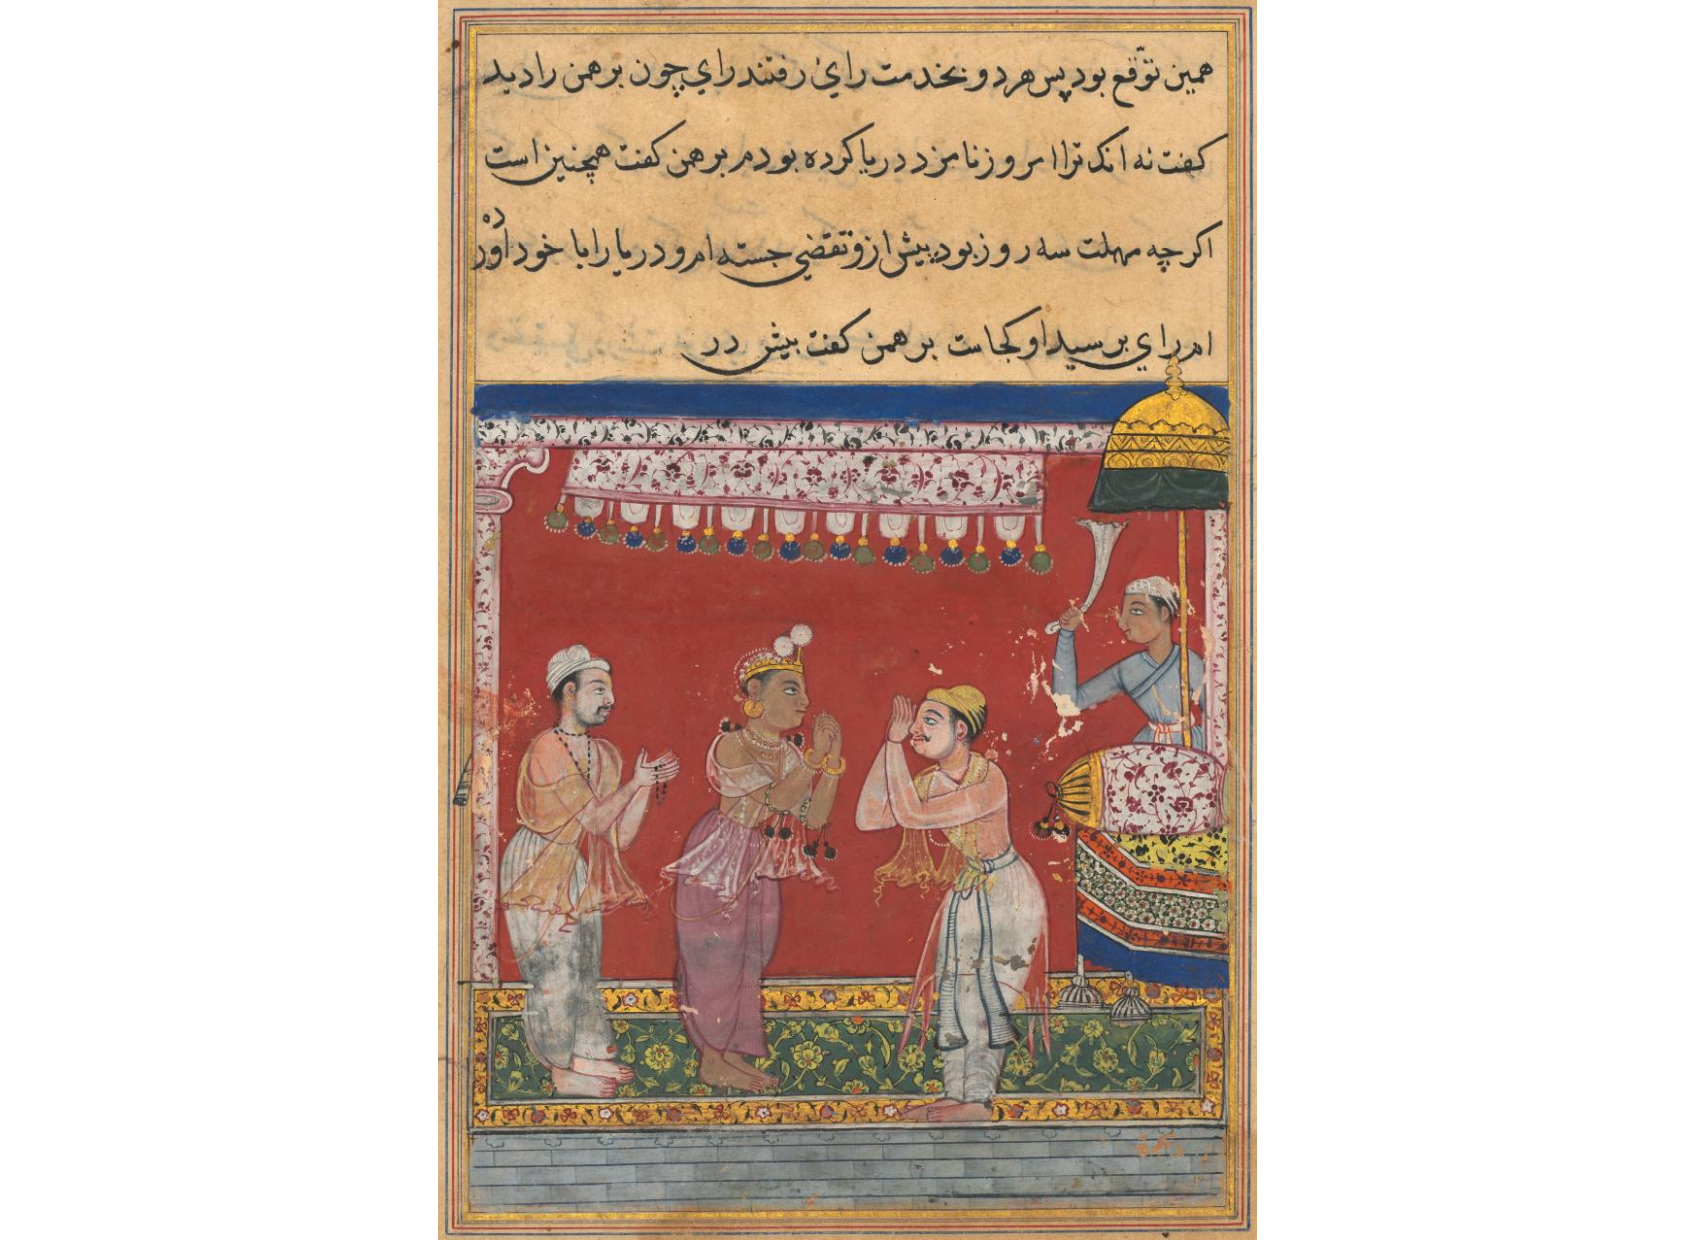 همین توقّع بود پس هر دو بخدمت رای رفتند رای چون برهمن را دید
کفت نه انک ترا امروز نامزد دریا کرده بودم برهمن کفت همچنین است
اکرچه مهلت سه روز بود پیش ازو تقضی جسته ام و دریا را با خود آورده
ام رای پرسید او کجاست برهمن کفت پیش در